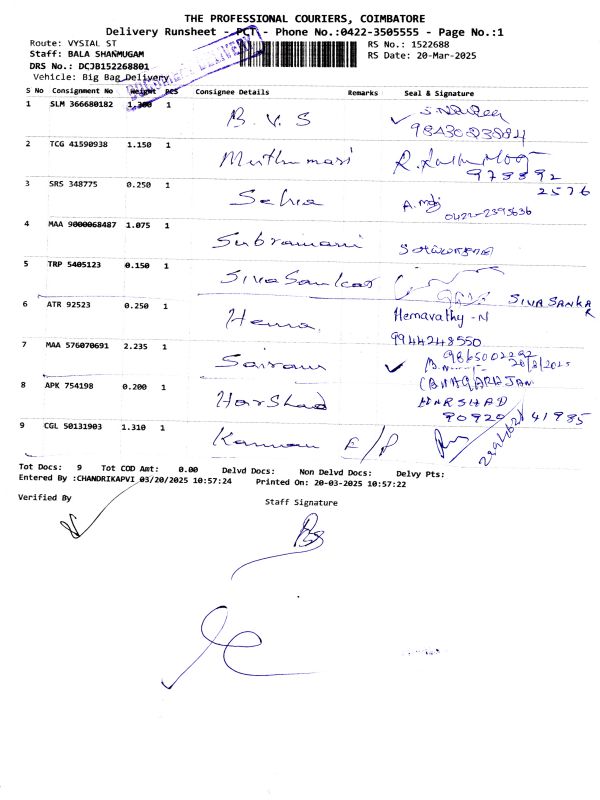 THE PROFESSIONAL COURIERS, COIMBATORE
Delivery Runsheet - PCT - Phone No.:0422-3505555 - Page No.:1
Route: VYSIAL ST
RS No.: 1522688
Staff: BALA SHANMUGAM
RS Date: 20-Mar-2025
DRS No.: DCJB152268801
Vehicle: Big Bag Delivery
S No Consignment No Weight PCS Consignee Details Remarks Seal & Signature
1 SLM 366680182 1.300 1 B.V.S
2 TCG 41590938 1.150 1 Muthumari
3 SRS 348775 0.250 1
2576
0422-2395636
4 MAA 9000068487 1.075 1 Subramani
5 TRP 5405123 0.150 1 Siva Sankar SIVA SANKAR
6 ATR 92523 0.250 1 Hema Hemavathy - N
9944248550
7 MAA 576070691 2.235 1 Sairam
8 APK 754198 0.200 1 Harshad HARSHAD
9 CGL 50131903 1.310 1 Kannan E/P
Tot Docs: 9 Tot COD Amt: 0.00 Delvd Docs: Non Delvd Docs: Delvy Pts:
Entered By :CHANDRIKAPVI 03/20/2025 10:57:24 Printed On: 20-03-2025 10:57:22
Verified By
Staff Signature